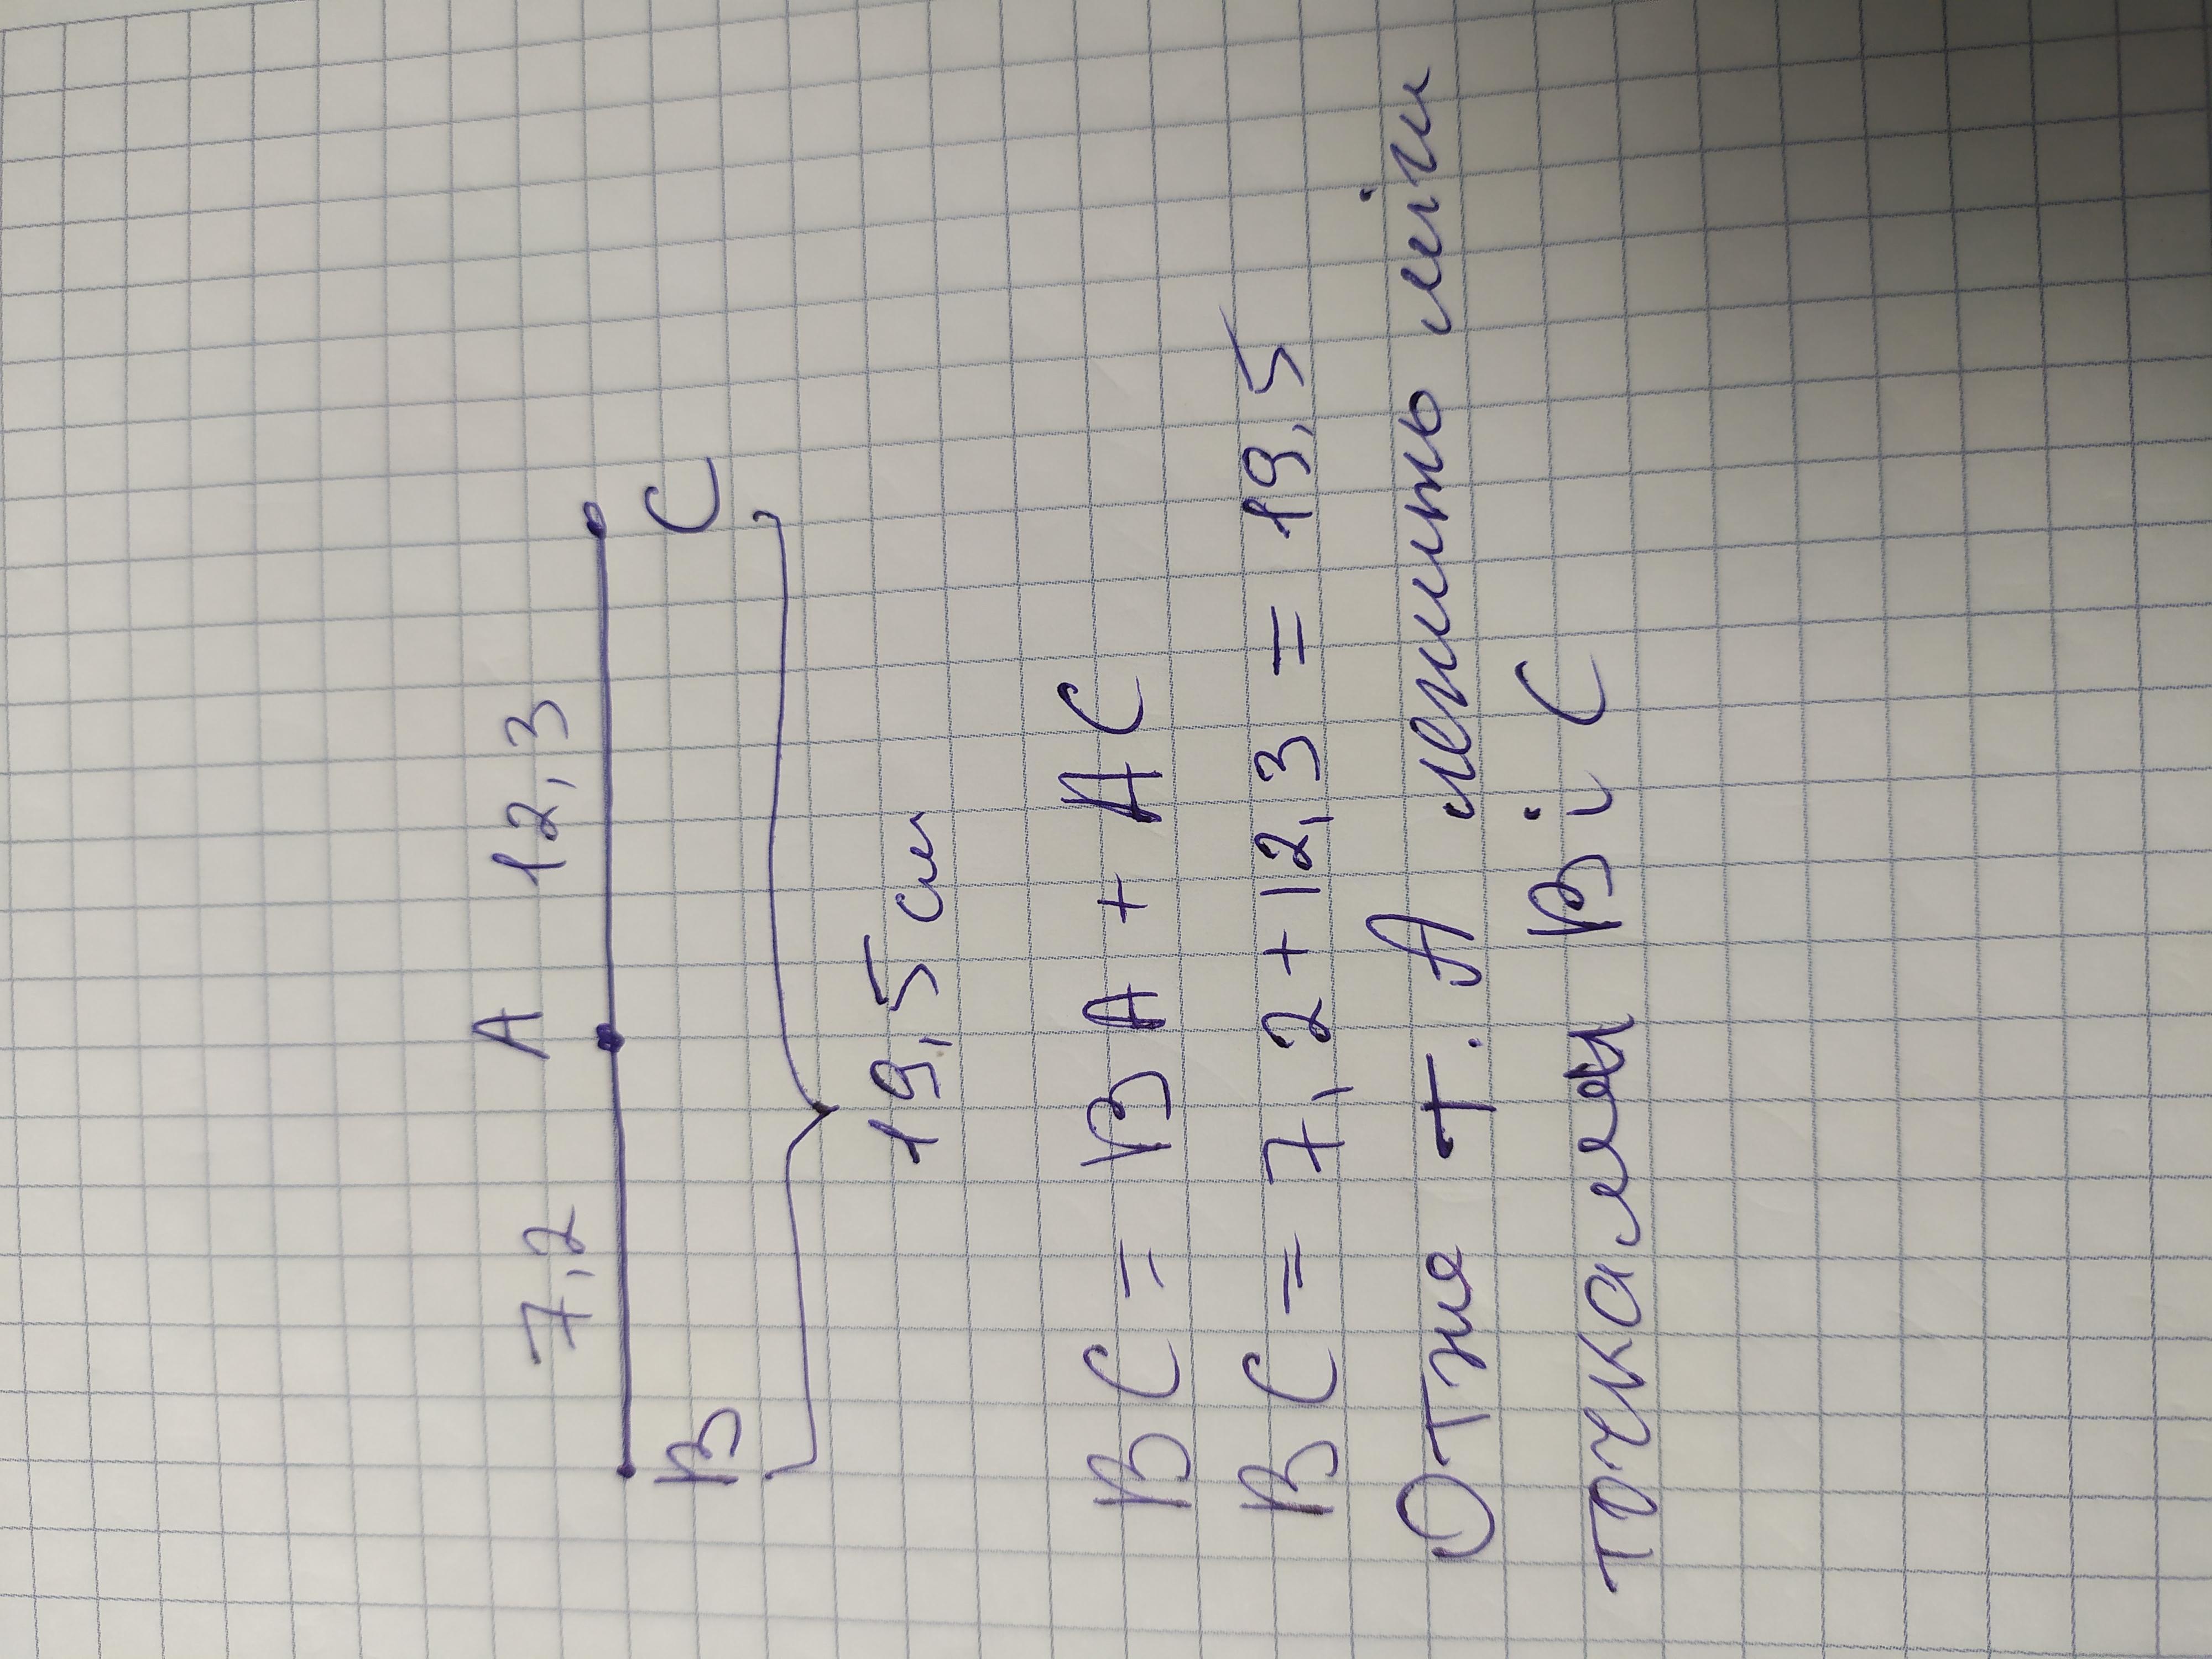 A
7,2 12,3
B C
19,5 см
BC = BA + AC
BC = 7,2 + 12,3 = 19,5
Отже т. A лежить між
точками B і C